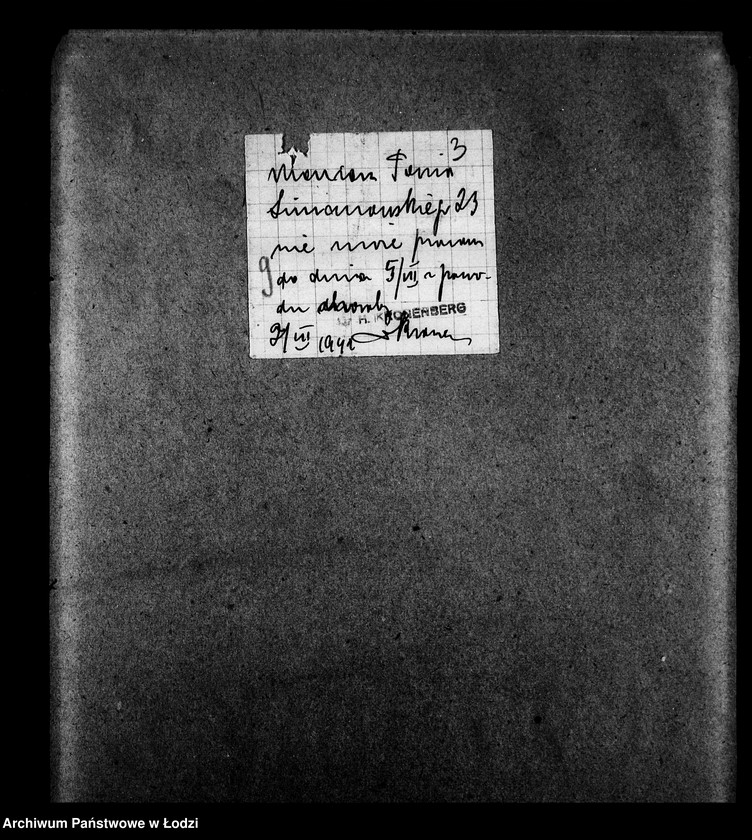 3
Pania
Limanowskiego 23
nie może pracow
9
do dnia 5/III z powo-
du choroby
H. KRONENBERG
3/III 1942
Archiwum Państwowe w Łodzi